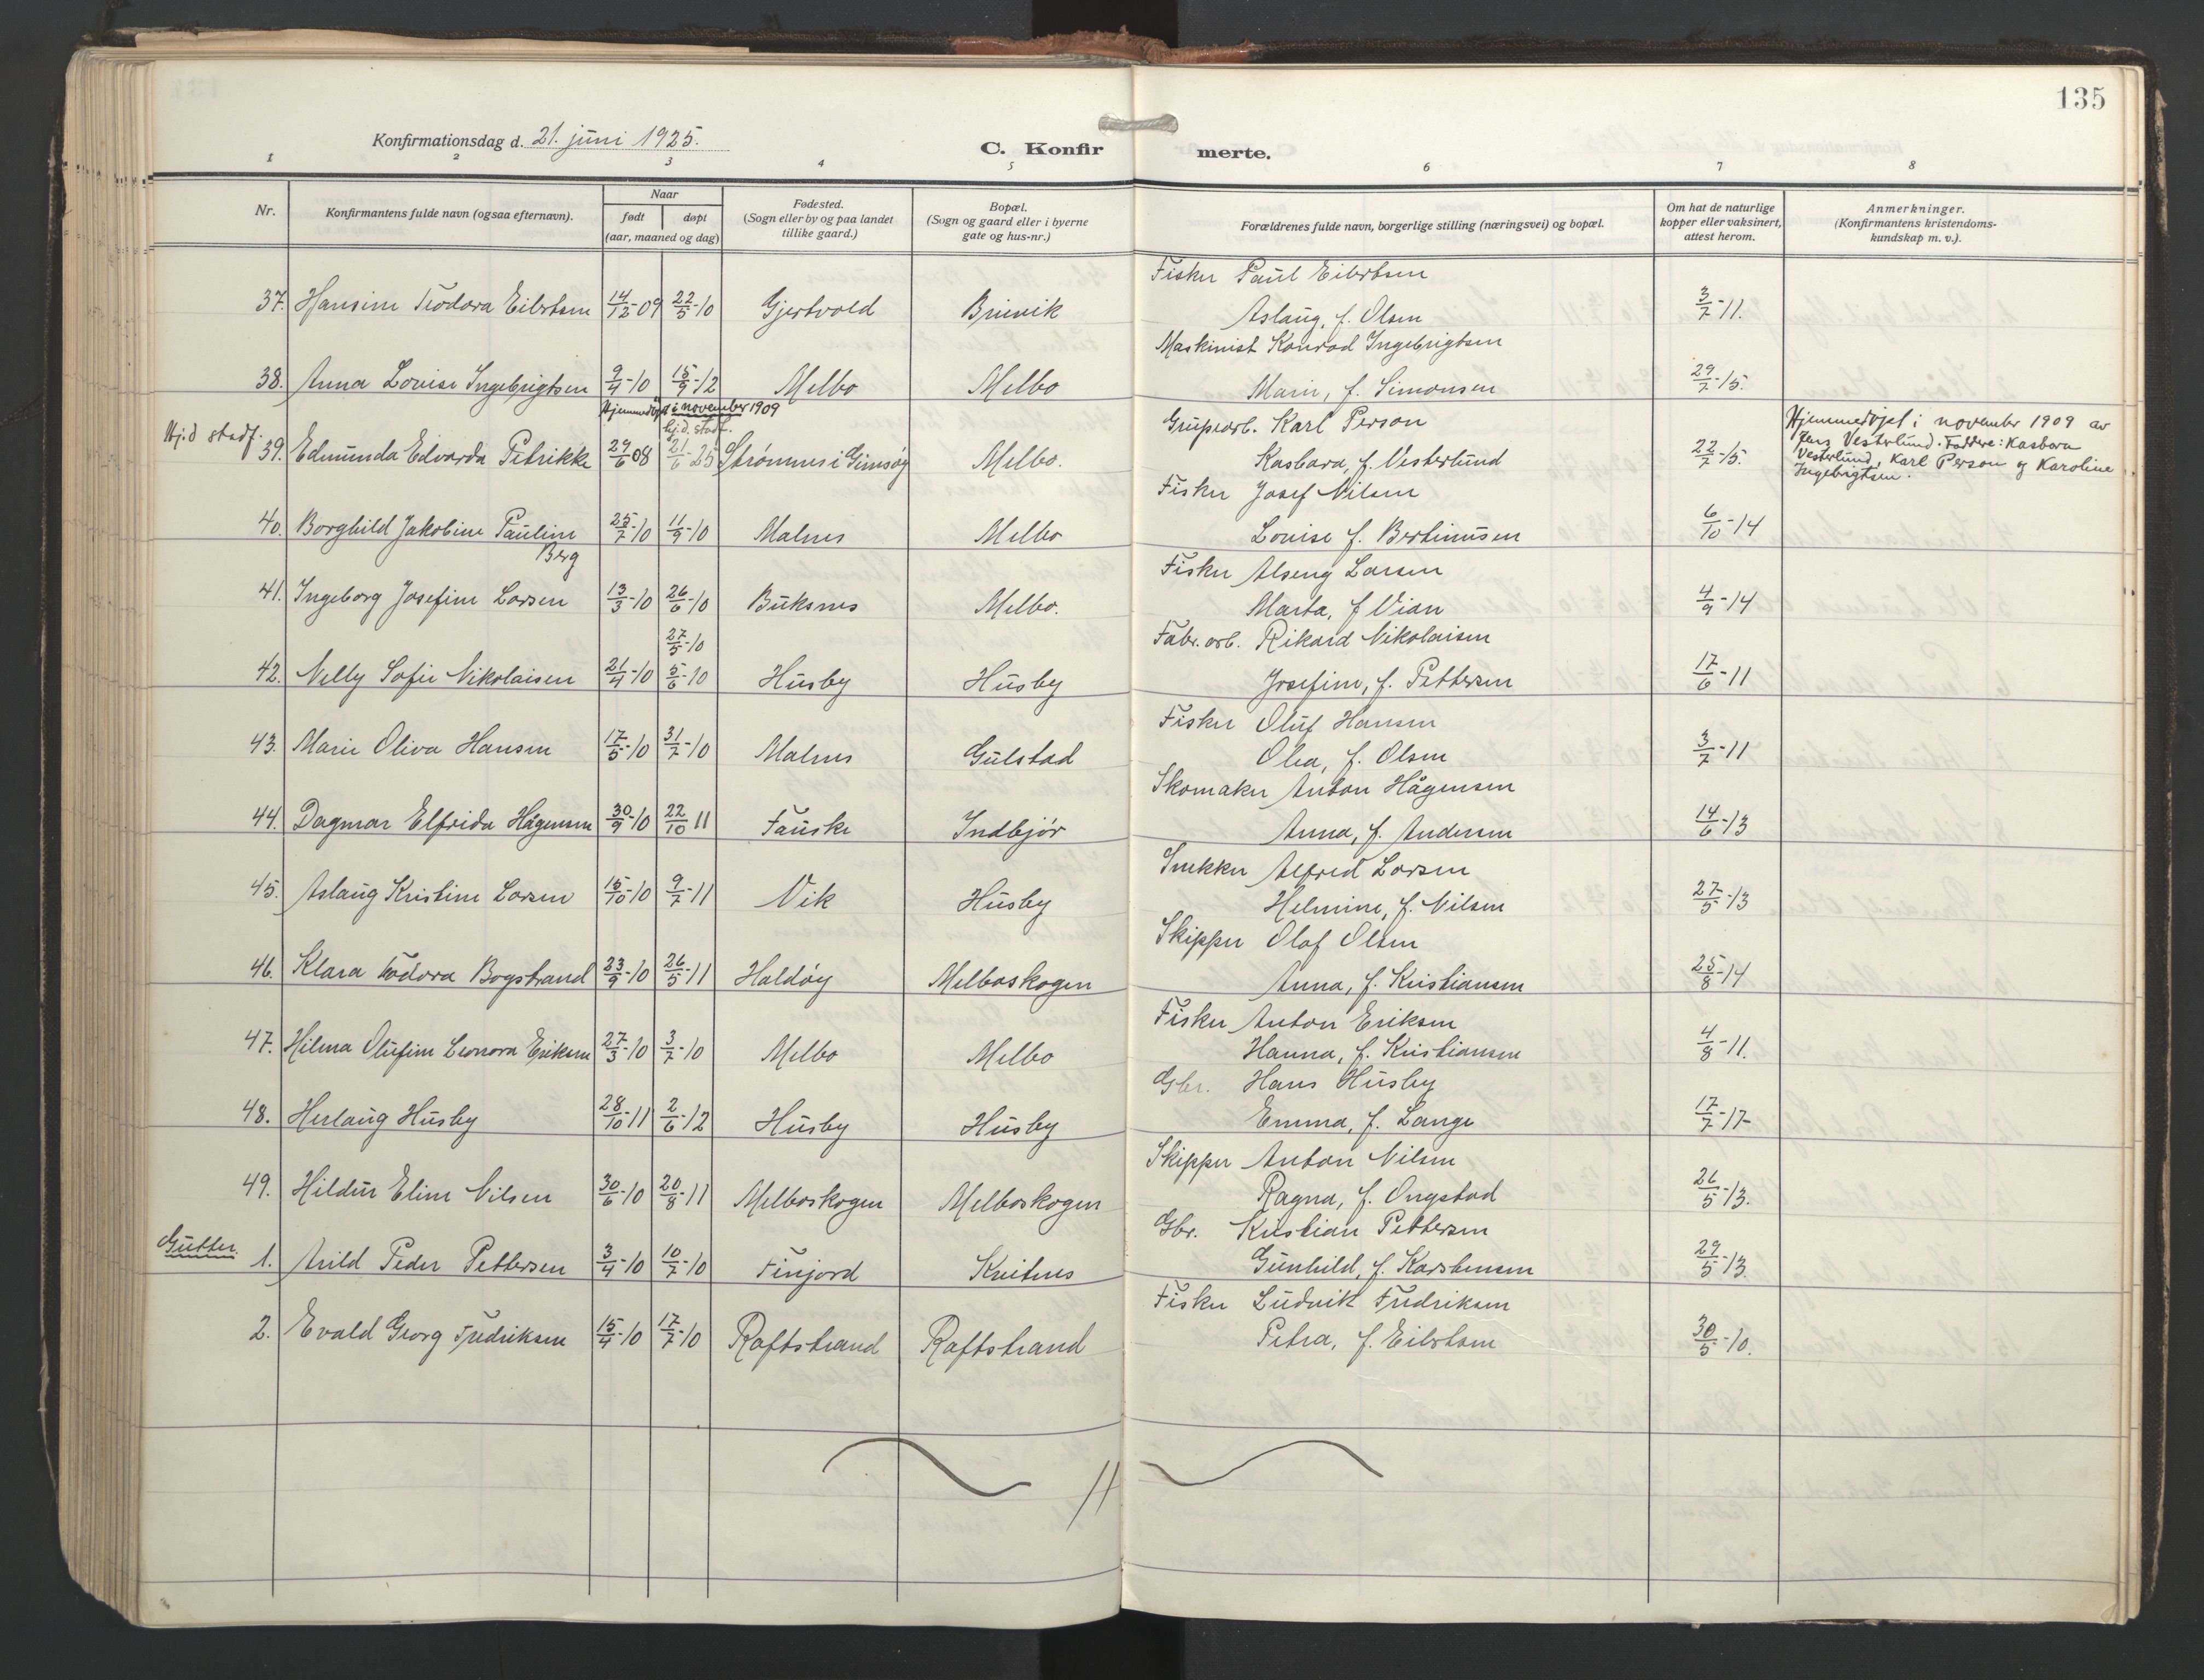 135
Konfirmationsdag d. 21. juni 1925.
C. Konfirmerte.
1 2 3 4 5 6 7 8
Nr.
Konfirmantens fulde navn (ogsaa efternavn).
Naar
født
døpt
(aar, maaned og dag)
Fødested.
(Sogn eller by og paa landet
tillike gaard.)
Bopæl.
(Sogn og gaard eller i byerne
gate og hus-nr.)
Forældrenes fulde navn, borgerlige stilling (næringsvei) og bopæl.
Om hat de naturlige
kopper eller vaksinert,
attest herom.
Anmerkninger.
(Konfirmantens kristendoms-
kundskap m. v.).
Fisker Paul Eilertsen
37. Hansine Teodora Eilertsen 14/12-09 22/5-10 Gjertvold Breivik Aslaug, f. Olsen 3/7-11.
Maskinist Konrad Ingebrigtsen
38. Anna Lovise Ingebrigtsen 9/4-10 15/9-12 Melbo Melbo Marie, f. Simonsen 29/7-15.
Hjemmedøpt i november 1909
Hj.d. stadf.
Hj.d stadf.
Grubearb. Karl Person
39. Edmunda Edvarda Petrikke 29/6-08 21/6-25 Strømnes i Gimsøy Melbo. Kasbara, f. Vesterlund 22/7-15.
Hjemmedøpt i november 1909 av
Jens Vesterlund. Faddere: Kasbara
Vesterlund, Karl Person og Karoline
Ingebrigtsen.
Fisker Josef Nilsen
40. Borghild Jakobine Pauline 25/7-10 11/9-10 Malnes Melbo Lovise f. Bertinussen 6/10-14
Berg
Fisker Alseng Larsen
41. Ingeborg Josefine Larsen 13/3-10 26/6-10 Buksnes Melbo. Marta, f Vian 4/9-14
27/5-10
Fabr. arb. Rikard Nikolaisen
42. Nelly Sofie Nikolaisen 21/4-10 5/6-10 Husby Husby Josefine, f. Pettersen 17/6-11
Fisker Oluf Hansen
43. Marie Oliva Hansen 17/5-10 31/7-10 Malnes Gulstad Olea, f. Olsen 3/7-11
Skomaker Anton Hågensen
44. Dagmar Elfrida Hågensen 30/9-10 22/10 11 Fauske Indbjör Anna, f. Andersen 14/6-13
Snekker Alfred Larsen
45. Aslaug Kristine Larsen 15/10-10 9/7-11 Vik Husby Helmine, f. Nilsen 27/5-13
Skipper Olaf Olsen
46. Klara Teodora Bogstrand 23/9-10 26/5-11 Haldöy Melboskogen Anna, f. Kristiansen 25/8-14
Fisker Anton Eriksen
47. Hilma Olufine Leonora Eriksen 27/3-10 3/7-10 Melbo Melbo Hanna, f. Kristiansen 4/8-11.
Gbr. Hans Husby
48. Herlaug Husby 28/10-11 2/6-12 Husby Husby Emma, f. Lange 17/7-17-
Skipper Anton Nilsen
49. Hildur Eline Nilsen 30/6-10 20/8-11 Melboskogen Melboskogen Ragna, f. Ongstad 26/5-13.
Gutter.
Gbr. Kristian Pettersen
1. Arild Peder Pettersen 3/4-10 10/7-10 Finjord Kreitnes Gunhild, f. Karstensen 29/5-13
Fisker Ludvik Fredriksen
2. Evald Georg Fredriksen 15/4-10 17/7-10 Raftstrand Raftstrand Petra, f. Eilertsen 30/5-10.